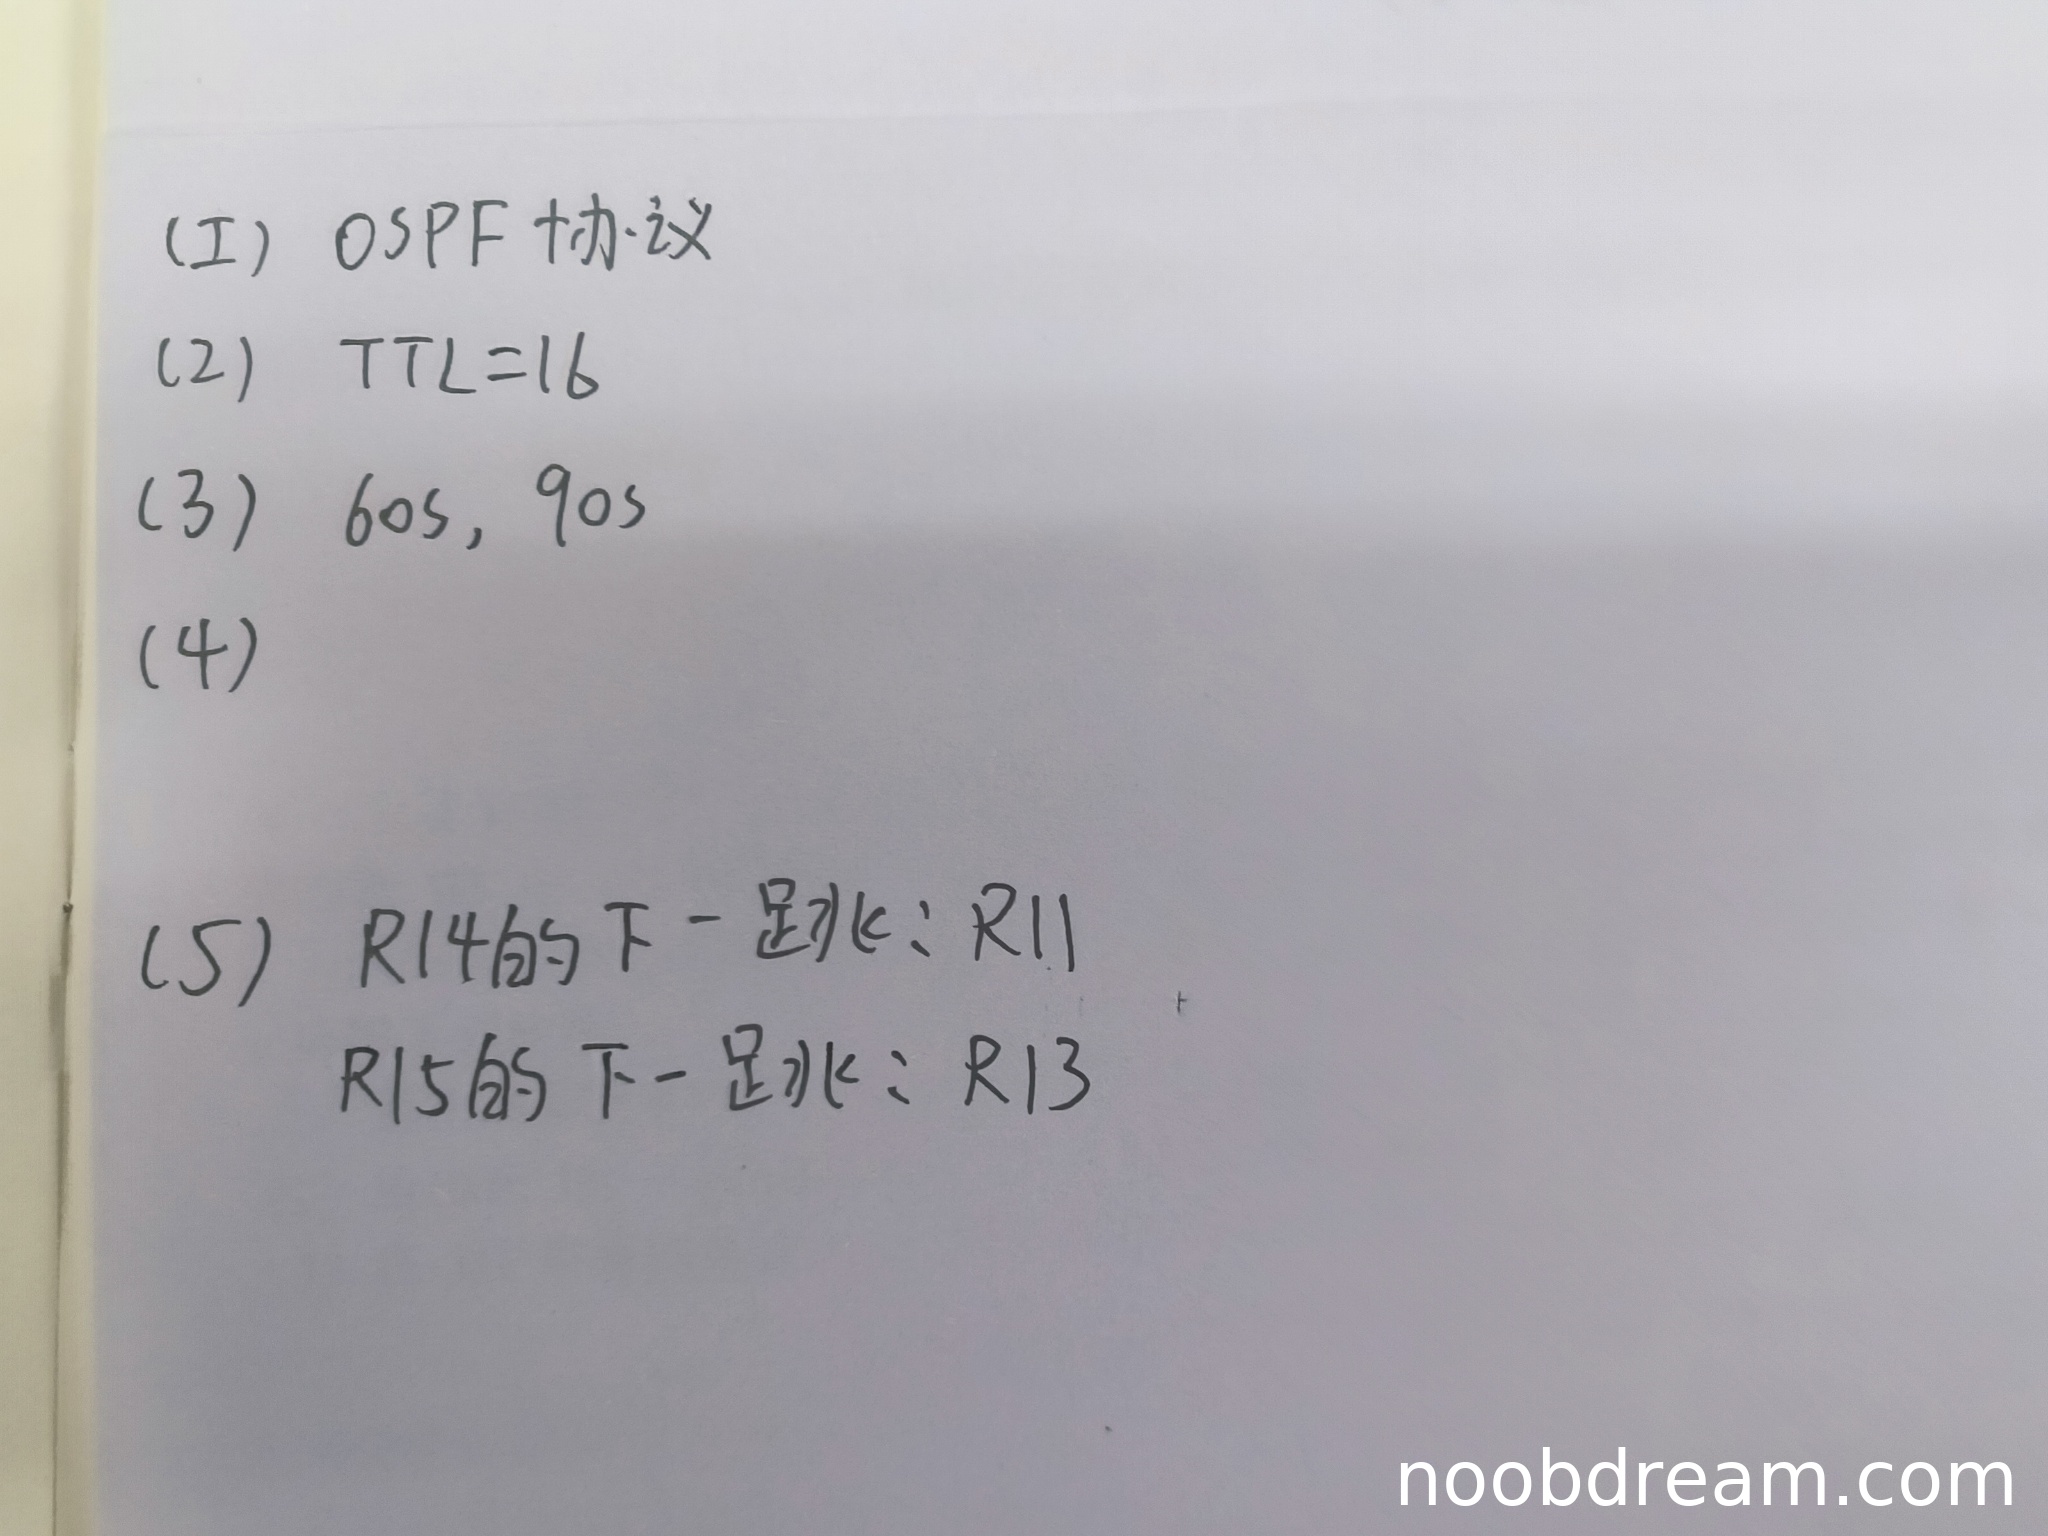 (1) OSPF 协议
(2) TTL=16
(3) 60s, 90s
(4)
(5) R14的下一跳: R11
R15的下一跳: R13
noobdream.com